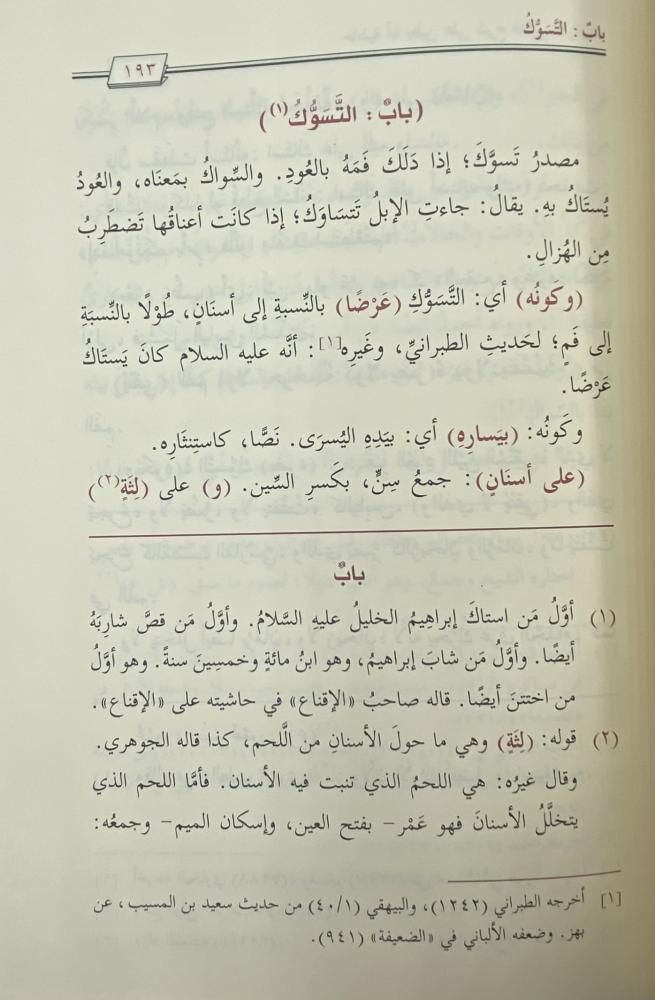 بابٌ : التَّسَوُّكُ
١٩٣
(بابٌ: التَّسَوُّكُ(١))
مصدرُ تَسوَّكَ؛ إذا دَلَكَ فَمَهُ بالعُودِ. والسِّواكُ بمَعنَاه، والعُودُ
يُستَاكُ بهِ. يقالُ: جاءتِ الإبلُ تَتسَاوَكُ؛ إذا كانَت أعناقُها تَضطَرِبُ
مِن الهُزالِ.
(وكَونُه) أي: التَّسَوُّكِ (عَرْضًا) بالنِّسبةِ إلى أسنَانٍ، طُوْلًا بالنِّسبَةِ
إلى فَمٍ؛ لحَديثِ الطبرانيِّ، وغَيرِه[١]: أنَّه عليه السلام كانَ يَستَاكُ
عَرْضًا.
وكَونُه: (بيَسارِهِ) أي: بيَدِهِ اليُسرَى. نَصًّا، كاستِنثَارِه.
(على أسنَانٍ): جمعُ سِنٍّ، بكَسرِ السِّين. (و) على (لِثَةٍ(٢))
بابٌ
(١) أوَّلُ مَن استاكَ إبراهِيمُ الخليلُ عليهِ السَّلامُ. وأوَّلُ مَن قصَّ شاربَهُ
أيضًا. وأوَّلُ مَن شابَ إبراهيمُ، وهو ابنُ مائةٍ وخمسِينَ سنةً. وهو أوَّلُ
من اختتنَ أيضًا. قاله صاحبُ «الإقناع» في حاشيته على «الإقناع».
(٢) قوله: (لِثَةٍ) وهي ما حولَ الأسنانِ من اللَّحم، كذا قاله الجوهري.
وقال غيرُه: هي اللحمُ الذي تنبت فيه الأسنان. فأمَّا اللحم الذي
يتخلَّلُ الأسنانَ فهو عَمْر- بفتح العين، وإسكان الميم- وجمعُه:
[١] أخرجه الطبراني (١٢٤٢)، والبيهقي (٤٠/١) من حديث سعيد بن المسيب، عن
بهز. وضعفه الألباني في «الضعيفة» (٩٤١).